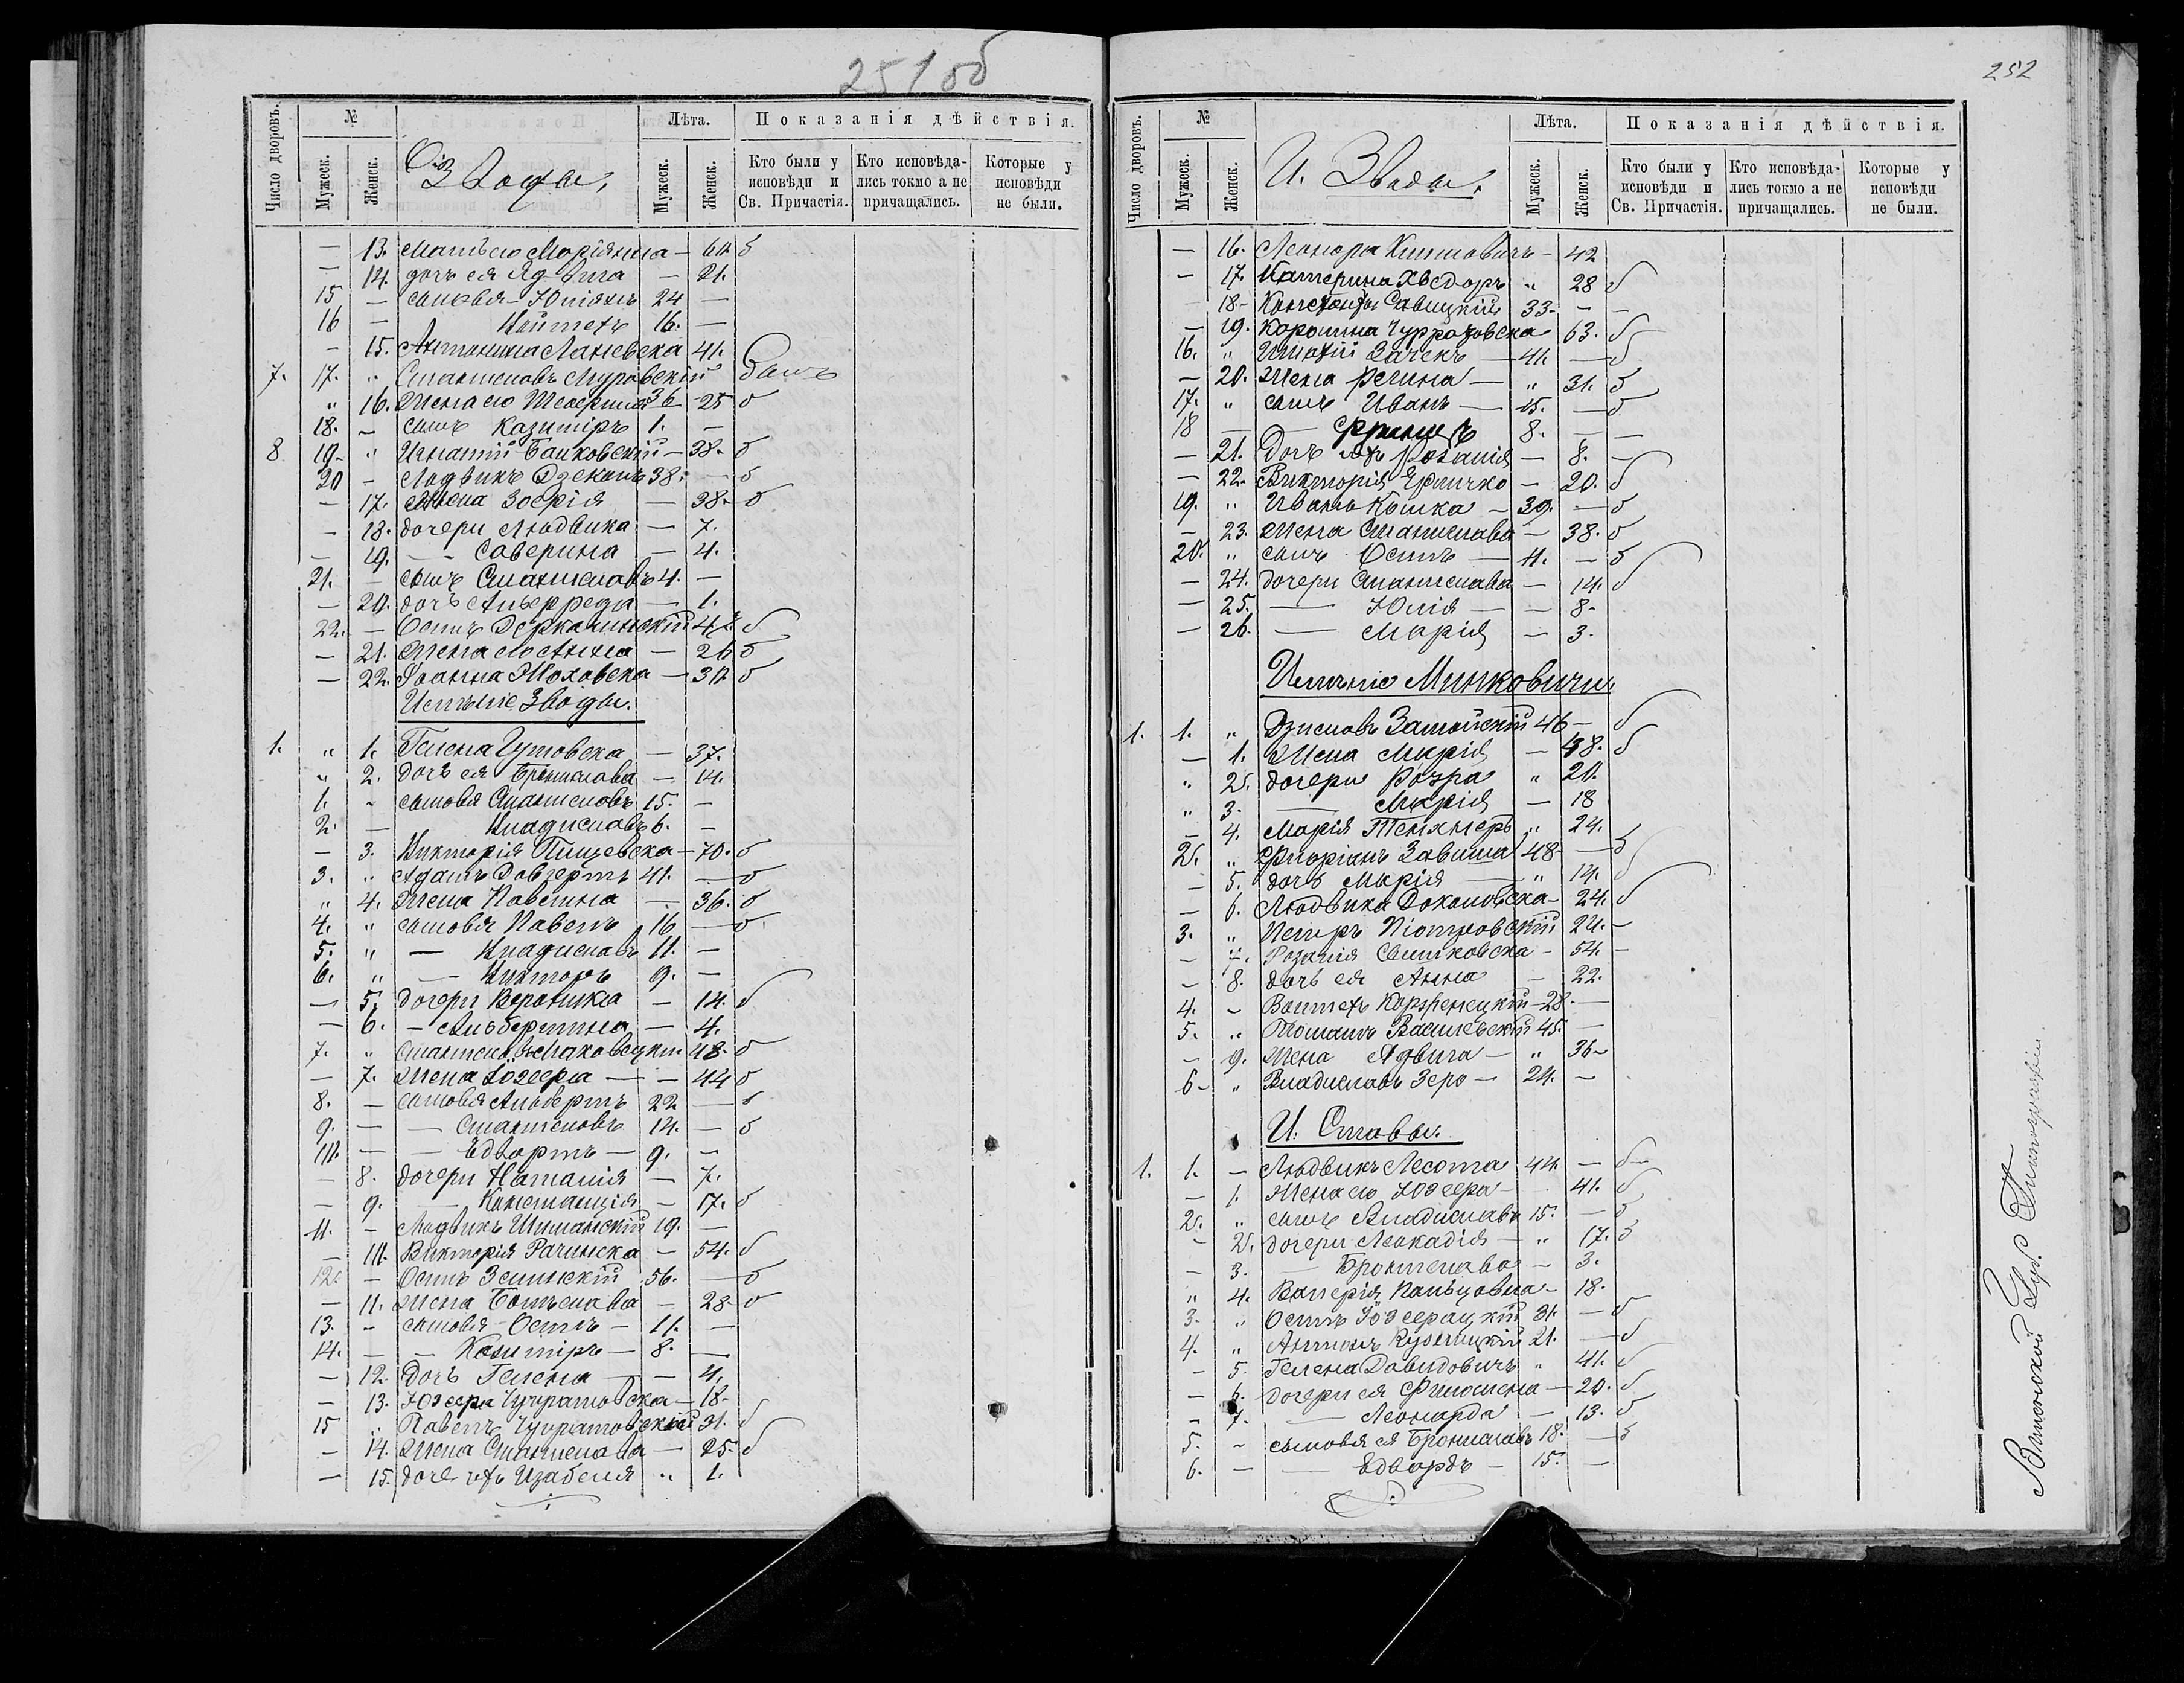 251 об
Число дворовъ. № Лѣта. Показанія дѣйствія.
Мужеск. Женск. Мужеск. Женск. Кто были у исповѣди и Св. Причастія. Кто исповѣдались токмо а не причащались. Которые у исповѣди не были.
Ок. Зводы.
— 13. Мать его Моріянна — 60 б
— 14. дочь ея Ядвига — 21.
15 — сыновья Юліянъ 24 —
16 — Войтехъ 16. —
— 15. Антонина Ланевска 41.
7. 17. " Станиславъ Муравскій былъ
" 16. Жена его Северина 36 25 б
18. — сынъ Казиміръ 1. —
8 19. " Игнатій Банковскій — 38. б
20 — Людвикъ Дзеконъ 38. — б
— 17. Жена Зофія — 38. б
— 18. дочери Людвика — 7.
— 19. — Саверина — 4.
21. — сынъ Станиславъ 4. —
— 20. дочь Альфреда — 1.
22. — Осипъ 42. б
— 21. Жена его Анна — 26 б
— 22. Іоанна Жоховска — 30 б
Имѣніе Зводы.
1. " 1. Гелена Гутовска — 37.
" 2. дочь ея Бронислава — 14.
1. " сыновья Станиславъ 15. —
2. — Владиславъ 6. —
— 3. Викторія Пищевска — 70. б
3. " Адамъ Довгертъ 41. — б
" 4. Жена Павлина — 36. б
4. " сыновья Павелъ 16 — б
5. " — Владиславъ 11. —
6. " — Викторъ 9. —
— 5. дочери Вероника — 14. б
— 6. — Альбертина — 4.
7. " Станиславъ Маковецкій 48. б
— 7. Жена Юзефа — 44 б
8. — сыновья Альбертъ 22 — б
9. — — Станиславъ 14. — б
10. — — Едвартъ — 9. —
— 8. дочери Наталія — 7.
— 9. — Констанція — 17. б
11. — Людвикъ Шиманскій 19. —
— 10. Викторія Рачинска — 54. б
12. — Осипъ Зелинскій 56. — б
— 11. Жена Болеслава — 28. б
13. — сыновья Осипъ — 11. —
14. — — Казиміръ — 8. —
— 12. Дочь Гелена — — 4.
— 13. Юзефа — 18.
15 " Павелъ 31. б
— 14. Жена Станислава — 25. б
— 15. дочь ихъ Изабеля " 1.
252
Число дворовъ. № Лѣта. Показанія дѣйствія.
Мужеск. Женск. Мужеск. Женск. Кто были у исповѣди и Св. Причастія. Кто исповѣдались токмо а не причащались. Которые у исповѣди не были.
И. Зводы.
— 16. Леонора — 42
— 17. Катерина Хведоръ " 28 б
— 18. Савицкій 33. — —
— 19. Каролина 63. б
16. " Игнатій Зачекъ — 41. — б
— 20. Жена Регина — " 31. б
17. " сынъ Иванъ — 15. — б
18 — — Францъ 8. — —
— 21. Дочь ихъ Розалія — 8. —
— 22. Викторія — 20. б
19. " Иванъ Кошка — 39. — б
— 23. Жена Станислава — 38. б
20. " сынъ Осипъ — 11. — б
— 24. дочери Станислава — 14. б
— 25. — Юлія — — 8.
— 26. — Марія — 3.
Имѣніе Минковичи
1. 1. " Здиславъ Замойскій 46 — б
— 1. Жена Марія — 48. б
" 2. дочери Розра " 20.
" 3. — Марія — 18
— 4. Марія " 24.
2. " Флоріанъ Завиша 48 — б
— 5. дочь Марія — " 14. б
— 6. Людвика — 24. б
3. " Петръ Піотровскій 24. —
— 7. Розалія — 54. —
— 8. дочь ея Анна — 22.
4. — Войтехъ Корженецкій — 28. —
5. " Томашъ Василевскій 45. —
— 9. Жена Ядвига — " 36 —
6 — " Владиславъ Зеро — 24. —
И. Ставы.
1. 1. — Людвикъ Лесота 44. — б —
— 1. Жена его Юзефа — 41. б
2. " сынъ Владиславъ 15. — б
— 2. дочери Леокадія — " 17. б
— 3. — Бронислава — 3.
" 4. Валерія — 18.
3. " Осипъ 31. — б
4. " Антонъ 21. — б
— 5. Гелена Давидовичъ " 41. б
— 6. дочери ея Филомена — 20. б
— 7. — Леонарда — 13. б
5. — сыновья ея Брониславъ 18. — б
6. — — Едвардъ — 15. —
Виленской Губ. Типографіи